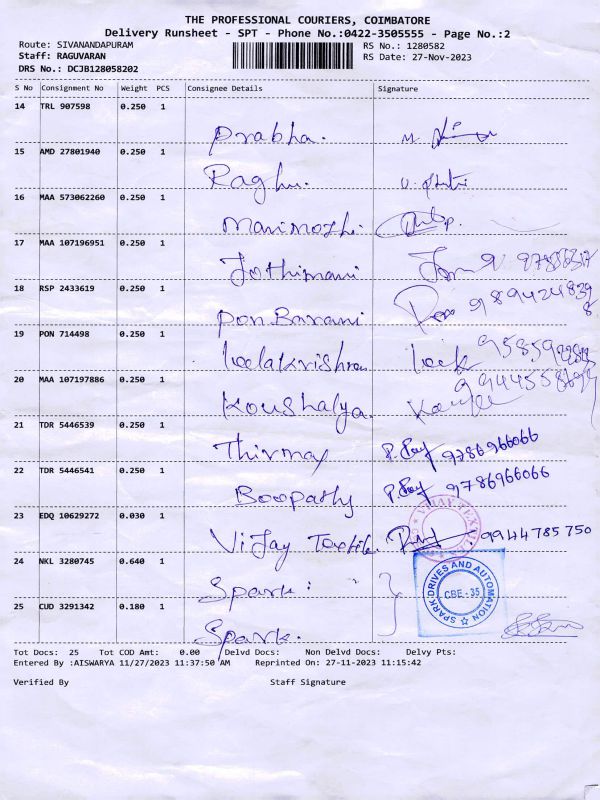 THE PROFESSIONAL COURIERS, COIMBATORE
Delivery Runsheet - SPT - Phone No.:0422-3505555 - Page No.:2
Route: SIVANANDAPURAM RS No.: 1280582
Staff: RAGUVARAN RS Date: 27-Nov-2023
DRS No.: DCJB128058202
S No Consignment No Weight PCS Consignee Details Signature
14 TRL 907598 0.250 1
Prabha.
15 AMD 27801940 0.250 1
Raghu.
16 MAA 573062260 0.250 1
Manimozhi.
17 MAA 107196951 0.250 1
Jothimani
18 RSP 2433619 0.250 1
Pon Barani 9894248398
19 PON 714498 0.250 1
Leelakrishna
20 MAA 107197886 0.250 1
Koushalya.
21 TDR 5446539 0.250 1
Thirumay 9786966066
22 TDR 5446541 0.250 1
Boopathy 9786966066
23 EDQ 10629272 0.030 1
VIJAY TEXTIL
Vijay Textile. 9944785750
24 NKL 3280745 0.640 1
Spark:
SPARK DRIVES AND AUTOMATION
CBE - 35
25 CUD 3291342 0.180 1
Spark.
Tot Docs: 25 Tot COD Amt: 0.00 Delvd Docs: Non Delvd Docs: Delvy Pts:
Entered By :AISWARYA 11/27/2023 11:37:50 AM Reprinted On: 27-11-2023 11:15:42
Verified By Staff Signature